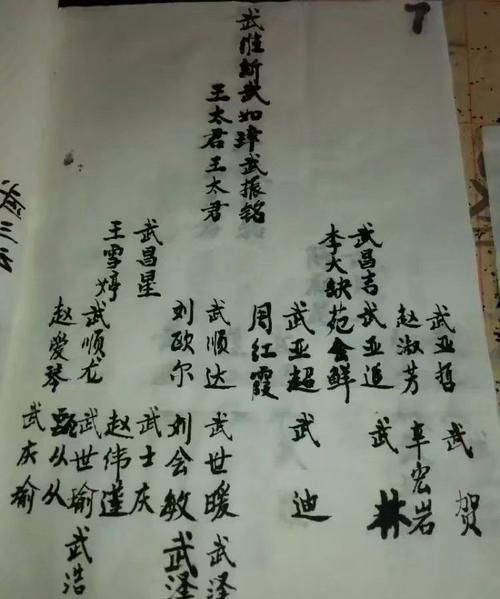 7
武維新武如璋武振铭
王太君王太君
武昌吉武亚追
李大缺苑会鲜
武亚哲
赵淑芳
武亚超
周红霞
武昌星
王雪婷
武顺达
刘欧尔
武顺龙
赵爱琴
武贺
车宏岩
武林
武迪
武世暖
武泽
刘会敏
武泽
武士庆
赵伟莲
武世瑜
甄从从
武浩
武庆瑜
武三